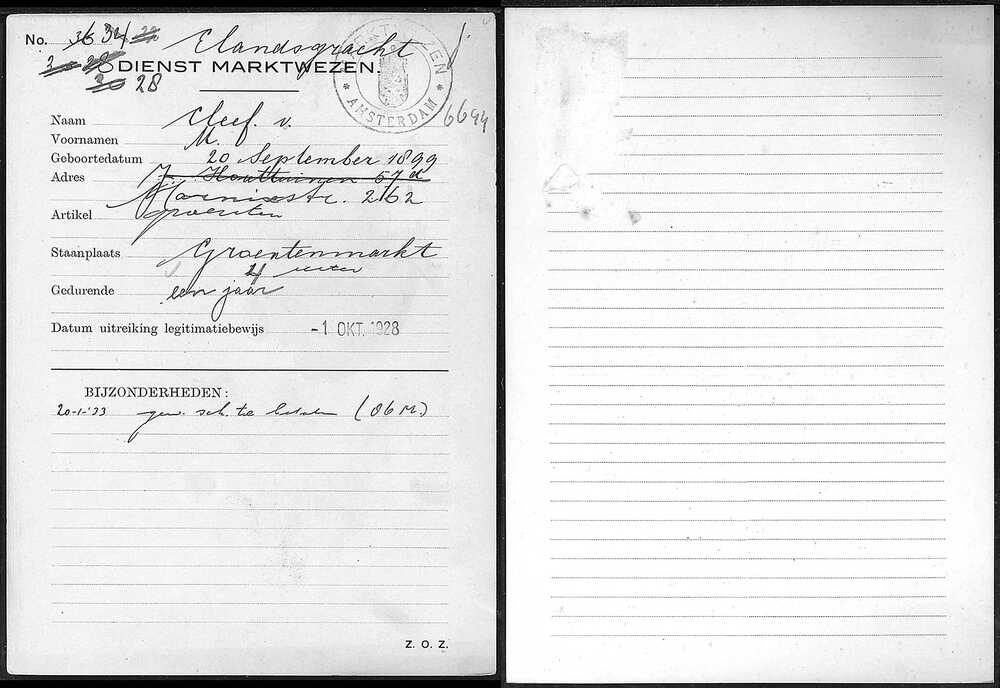 No. 36 34 28
Elandsgracht
28
DIENST MARKTWEZEN.
30 28
MARKTWEZEN
* AMSTERDAM *
6694
Naam Cleef. v.
Voornamen M.
Geboortedatum 20 September 1899
Adres J. Houttuinen 57
Marnixstr. 262
Artikel groenten
Staanplaats Groentenmarkt
4 meter
Gedurende een jaar
Datum uitreiking legitimatiebewijs -1 OKT. 1928
BIJZONDERHEDEN:
20-1-'33 gew. sch. te betalen (06 M.)
Z. O. Z.